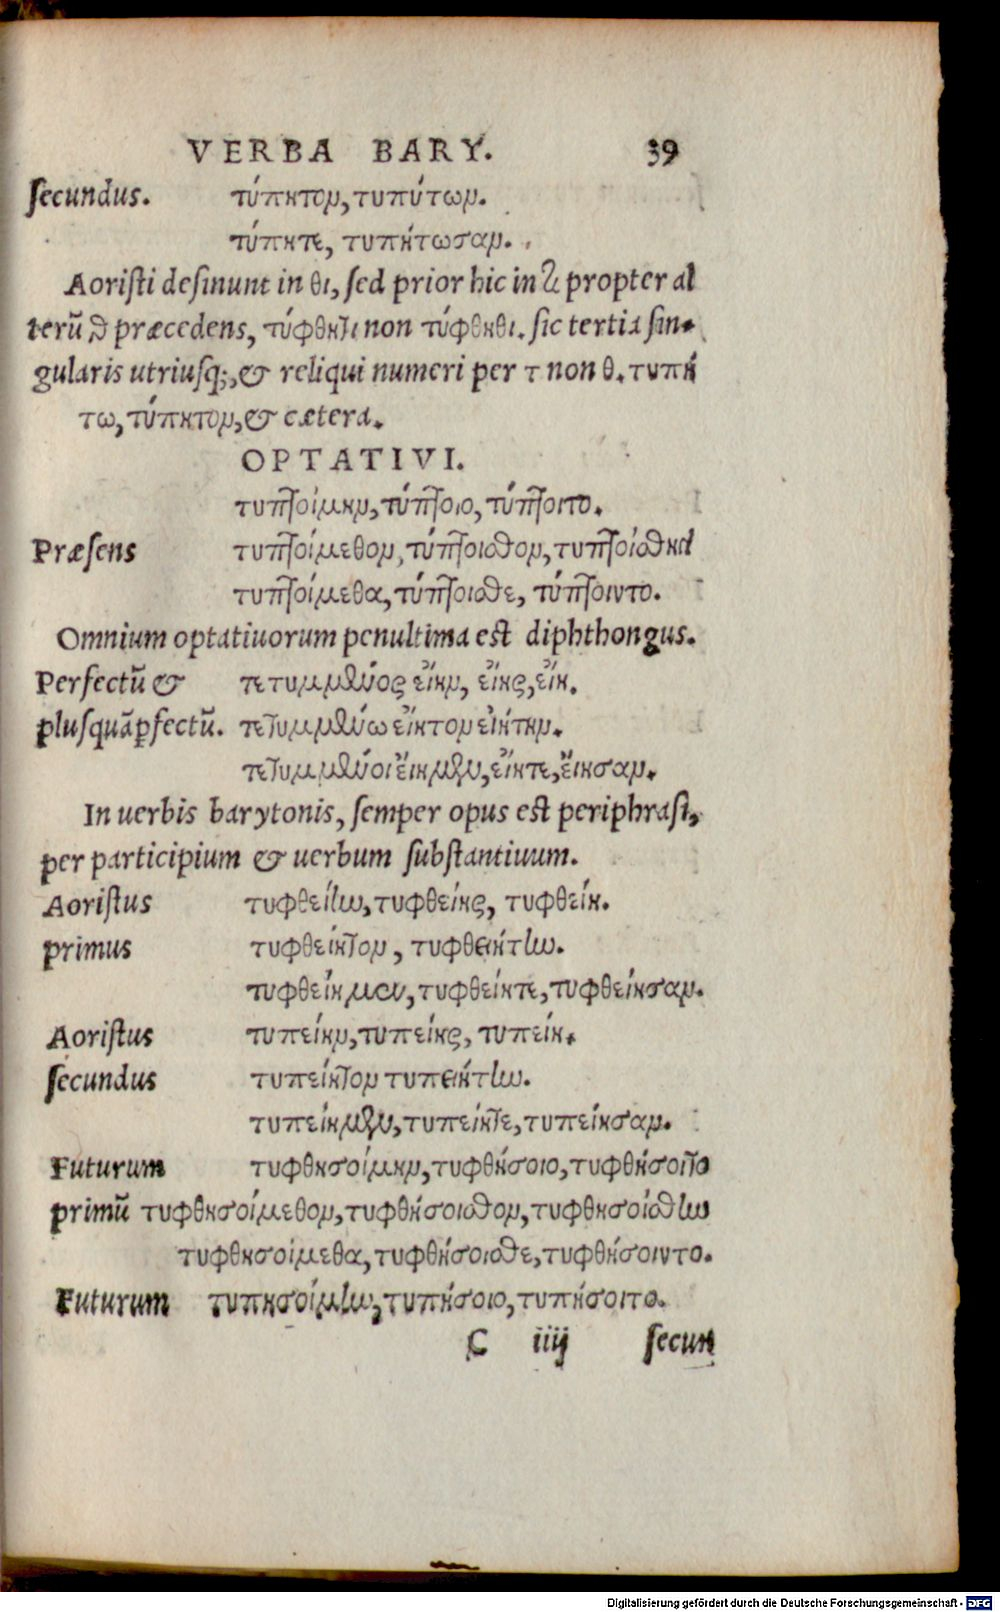 VERBA BARY. 39
secundus. τύπητον, τυπύτων.
τύπητε, τυπήτωσαν.
Aoristi desinunt in θι, sed prior hic in τι propter al
terũ θ præcedens, τύφθητι non τύφθηθι. sic tertia sin-
gularis utriusq;, & reliqui numeri per τ non θ. τυπή
τω, τύπητον, & cætera.
OPTATIVI.
τυπτοίμην, τύπτοιο, τύπτοιτο.
Præsens τυπτοίμεθον, τύπτοισθον, τυπτοίσθην
τυπτοίμεθα, τύπτοισθε, τύπτοιντο.
Omnium optatiuorum penultima est diphthongus.
Perfectũ & τετυμμένος εἴην, εἴης, εἴη.
plusquãpfectũ. τετυμμένω εἴητον εἰήτην.
τετυμμένοι εἴημεν, εἴητε, εἴησαν.
In uerbis barytonis, semper opus est periphrasi,
per participium & uerbum substantiuum.
Aoristus τυφθείην, τυφθείης, τυφθείη.
primus τυφθείητον, τυφθειήτην.
τυφθείημεν, τυφθείητε, τυφθείησαν.
Aoristus τυπείην, τυπείης, τυπείη.
secundus τυπείητον τυπειήτην.
τυπείημεν, τυπείητε, τυπείησαν.
Futurum τυφθησοίμην, τυφθήσοιο, τυφθήσοιτο
primũ τυφθησοίμεθον, τυφθήσοισθον, τυφθησοίσθην
τυφθησοίμεθα, τυφθήσοισθε, τυφθήσοιντο.
Futurum τυπησοίμην, τυπήσοιο, τυπήσοιτο.
C iiij secun
Digitalisierung gefördert durch die Deutsche Forschungsgemeinschaft - DFG